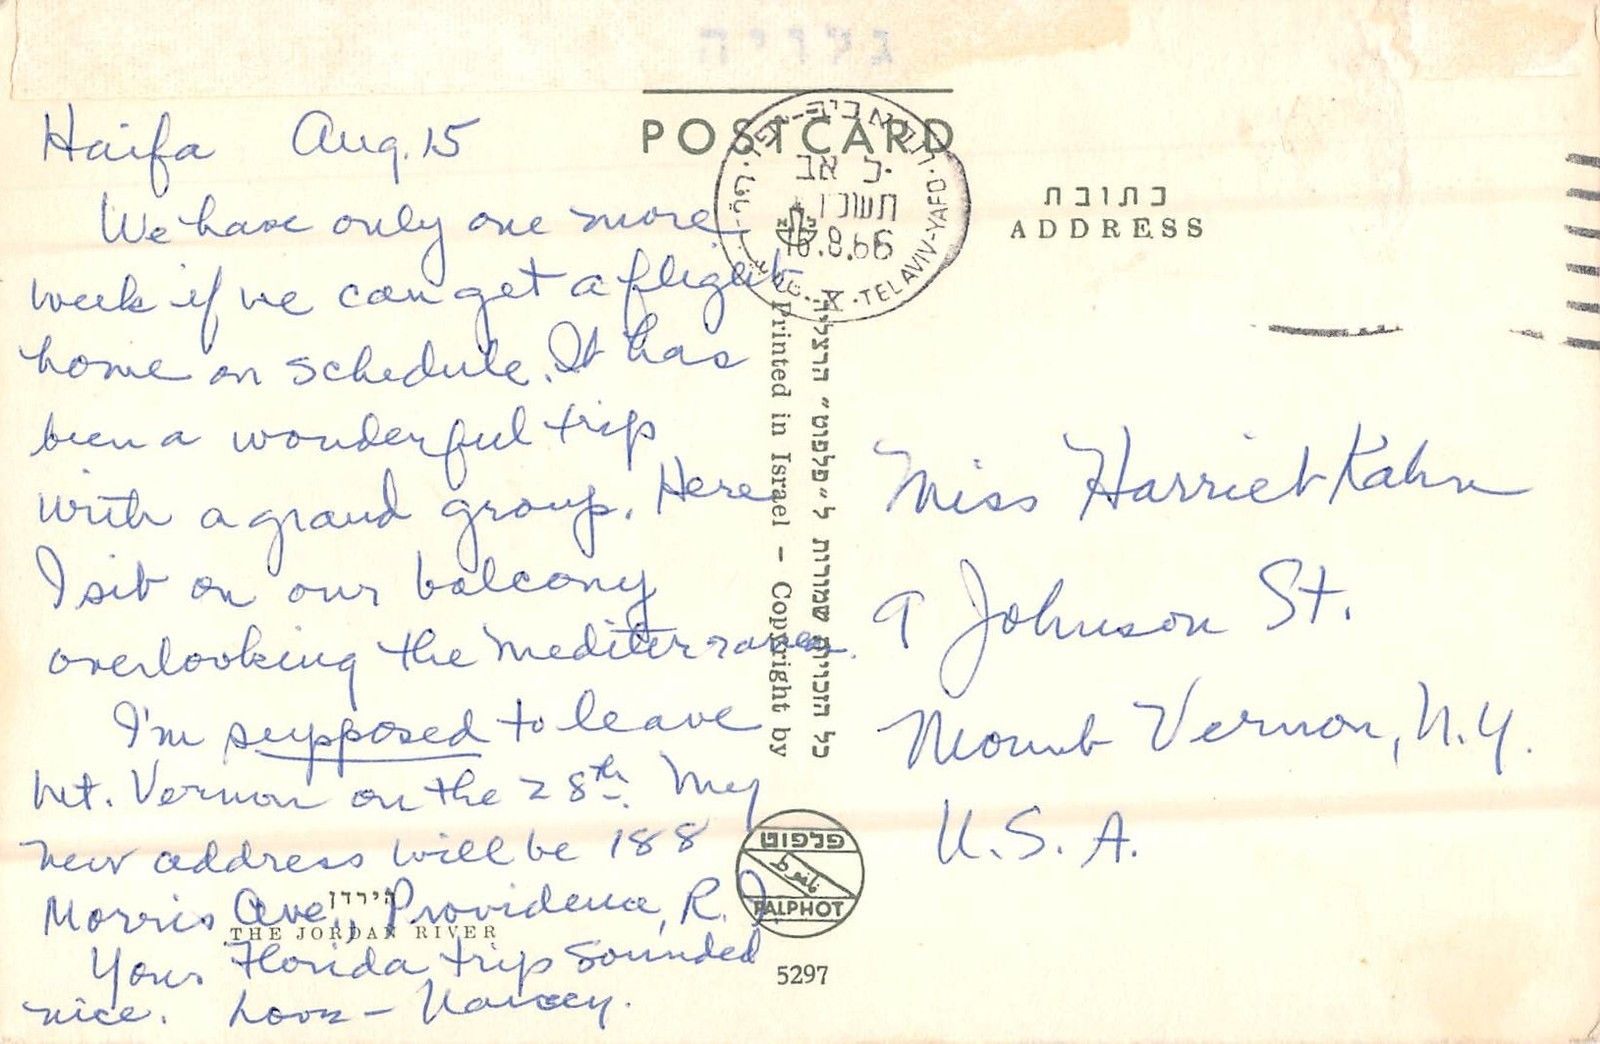 גלויה
POSTCARD
כתובת
ADDRESS
ל אב
תשכו
.8.66
TEL AVIV-YAFO
Haifa Aug. 15
We have only one more
week if we can get a flight
home on schedule. It has
been a wonderful trip
with a grand group. Here
I sit on our balcony
overlooking the Mediterranean.
I'm supposed to leave
Mt. Vernon on the 28th. My
new address will be 188
Morris Ave., Providence, R. I.
Your Florida trip sounded
nice. Love - Nancy.
הירדן
THE JORDAN RIVER
Printed in Israel – Copyright by
כל הזכויות שמורות ל״פלפוט״ הרצליה
פלפוט
بلفوط
PALPHOT
5297
Miss Harriet Kahn
9 Johnson St.
Mount Vernon, N.Y.
U.S.A.